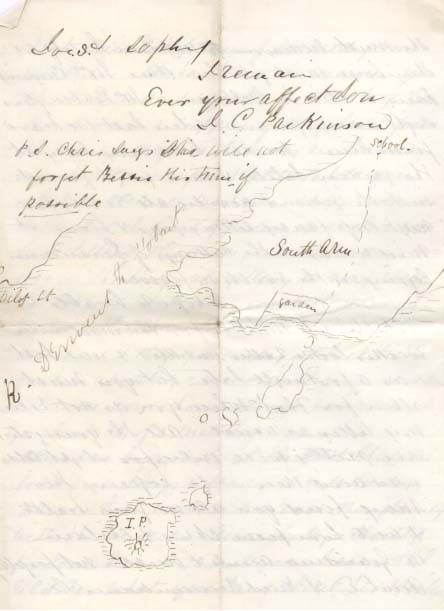 Sophy
I remain
Ever your affect Son
J. C. Parkinson
P.S. Chris says this will not
forget Bessie this time if
possible
School.
South Arm
garden
Derwent to Hobart
Pilot St.
R.
I.P.